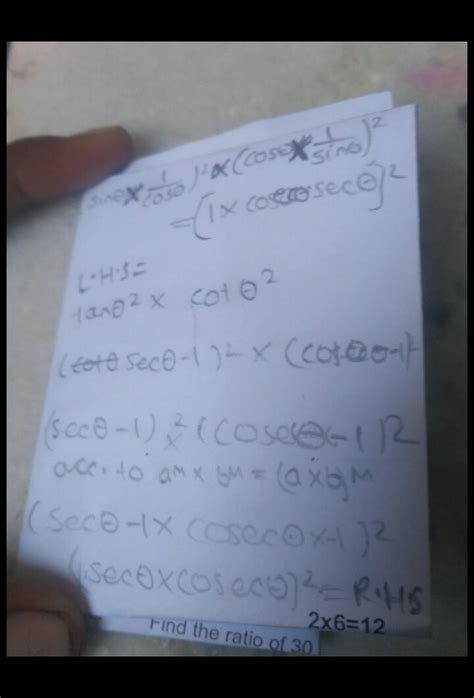 sinθ×1/cosθ)²×(cosθ×1/sinθ)²
=(1×cosecosecθ)²
L.H.S=
tanθ² × cotθ²
(cotθ secθ-1)² × (
(secθ-1)²×(cosecθ-1)2
acc. to aᴹ × bᴹ = (a×b)ᴹ
(secθ-1× cosecθ×-1)²
(1secθ×cosecθ)² = R.HS
2x6=12
Find the ratio of 30